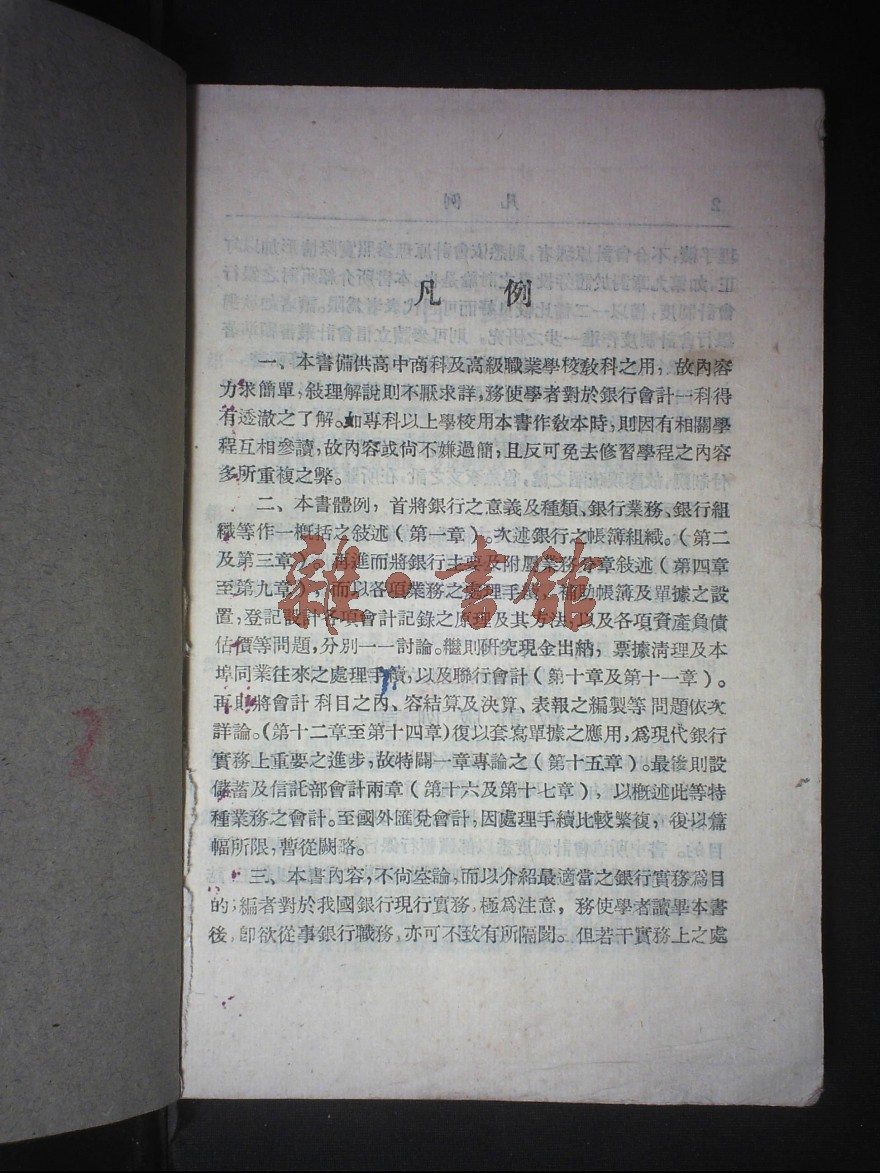 凡例
一、本書備供高中商科及高級職業學校教科之用，故內容
力求簡單，敍理解說則不厭求詳，務使學者對於銀行會計一科得
有透澈之了解。如專科以上學校用本書作敎本時，則因有相關學
程互相參讀，故內容或尙不嫌過簡，且反可免去修習學程之內容
多所重複之弊。
二、本書體例，首將銀行之意義及種類、銀行業務、銀行組
織等作一概括之敍述（第一章）。次述銀行之帳簿組織。（第二
及第三章）。再進而將銀行主要及附屬業務分章敍述（第四章
至第九章），而以各項業務之處理手續，補助帳簿及單據之設
置，登記設計各項會計記錄之原理及其方法，以及各項資產負債
估價等問題，分別一一討論。繼則研究現金出納，票據淸理及本
埠同業往來之處理手續，以及聯行會計（第十章及第十一章）。
再則將會計科目之內、容結算及決算、表報之編製等問題依次
詳論。（第十二章至第十四章）復以套寫單據之應用，爲現代銀行
實務上重要之進步，故特闢一章專論之（第十五章）。最後則設
儲蓄及信託部會計兩章（第十六及第十七章），以槪述此等特
種業務之會計。至國外匯兌會計，因處理手續比較繁復，復以篇
幅所限，暫從闕略。
三、本書內容，不尙空論，而以介紹最適當之銀行實務爲目
的；編者對於我國銀行現行實務，極爲注意，務使學者讀畢本書
後，卽欲從事銀行職務，亦可不致有所隔閡。但若干實務上之處
雜·書館